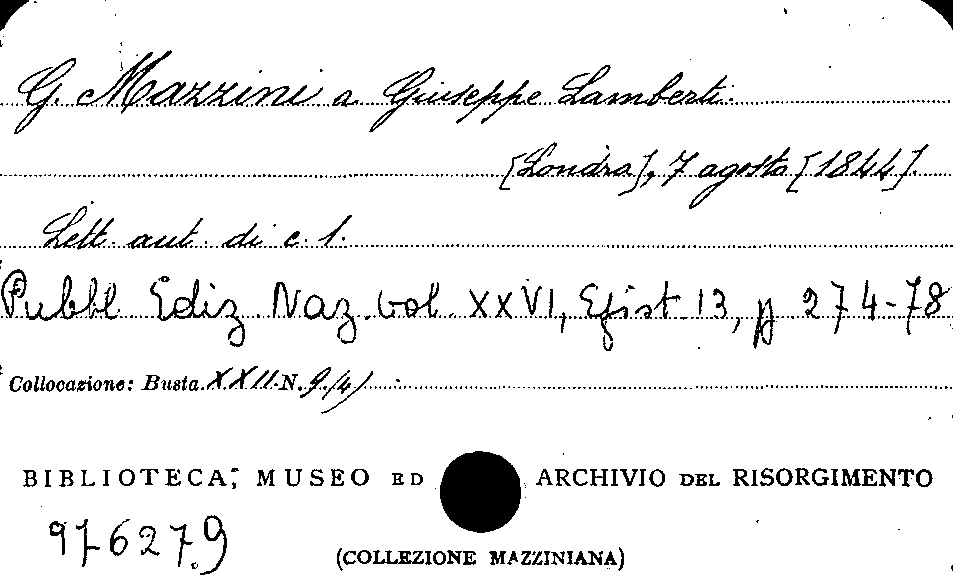 G. Mazzini a Giuseppe Lamberti.
[Londra], 7 agosto [1844].
Lett. aut. di c. 1.
Pubbl Ediz. Naz. vol. XXVI, Epist. 13, p 274-78
Collocazione: Busta XXII N. 9 (4)
BIBLIOTECA, MUSEO ED ARCHIVIO DEL RISORGIMENTO
976279
(COLLEZIONE MAZZINIANA)